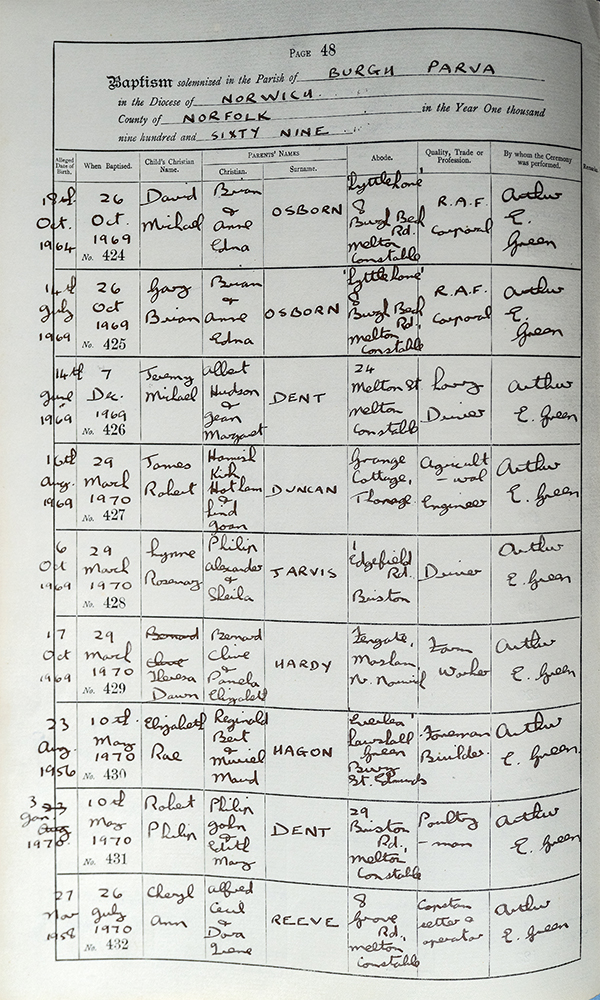 PAGE 48
Baptism solemnized in the Parish of BURGH PARVA
in the Diocese of NORWICH in the Year One thousand
County of NORFOLK
nine hundred and SIXTY NINE
Alleged Date of Birth. When Baptised. Child's Christian Name. PARENTS' NAMES Christian. Surname. Abode. Quality, Trade or Profession. By whom the Ceremony was performed. Remarks
Oct. 1964 26 Oct. 1969 No. 424 David Michael Brian & Anne Edna OSBORN 'Lyttlehone' 8 Burgh Bech Rd. Melton Constable R.A.F. Corporal Arthur E. Green
14th July 1969 26 Oct 1969 No. 425 Gary Brian Brian & Anne Edna OSBORN 'Lyttlehone' 8 Burgh Bech Rd, Melton Constable R.A.F. Corporal Arthur E. Green
14th June 1969 7 Dec. 1969 No. 426 Jeremy Michael Albert Hudson & Jean Margaret DENT 24 Melton St Melton Constable Lorry Driver Arthur E. Green
16th Aug. 1969 29 March 1970 No. 427 James Robert Hamish Kirk Hotham & Lind Joan DUNCAN Grange Cottage, Thornage Agricult-ural Engineer Arthur E. Green
6 Oct 1969 29 March 1970 No. 428 Lynne Rosemary Philip Alexander & Sheila JARVIS 1 Edgefield Rd. Briston Driver Arthur E. Green
17 Oct 1969 29 March 1970 No. 429 Bernard Clive Theresa Dawn Bernard Clive & Pamela Elizabeth HARDY Nr. Norwich Farm Worker Arthur E. Green
23 Aug. 1956 10th May 1970 No. 430 Elizabeth Rae Reginald Bert & Muriel Maud HAGON Lawshall Green Bury St. Edmunds Foreman Builder Arthur E. Green
3 Jan. 1970 10th May 1970 No. 431 Robert Philip Philip John & Edith Mary DENT 29 Briston Rd., Melton Constable Poultry-man Arthur E. Green
27 Nov 1958 26 July 1970 No. 432 Cheryl Ann Alfred Cecil & Dora Irene REEVE 8 Grove Rd., Melton Constable Capstan setter & operator Arthur E. Green